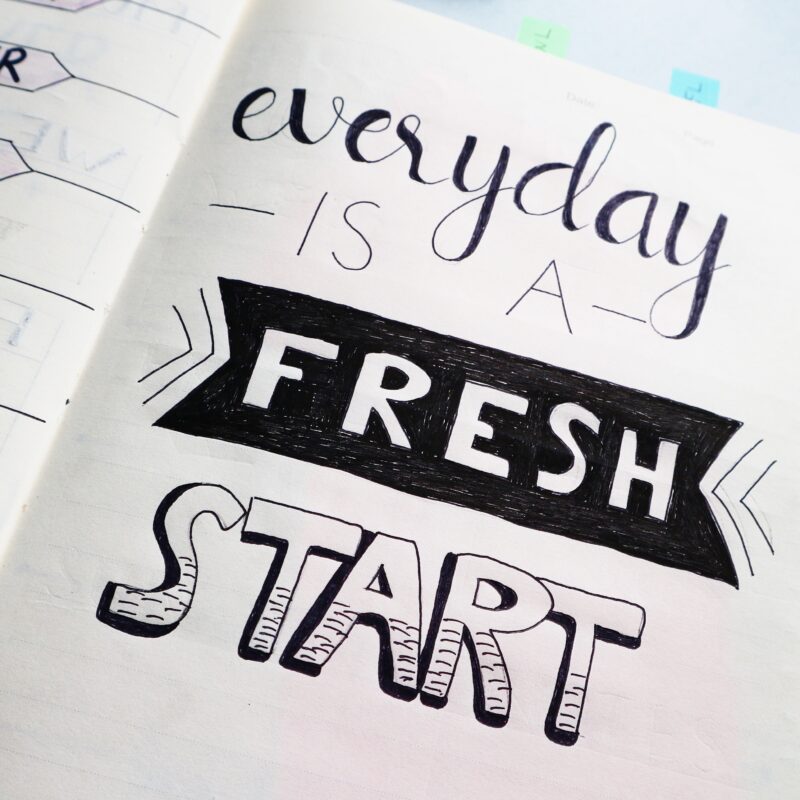 everyday
IS A
FRESH
START
Date
Page